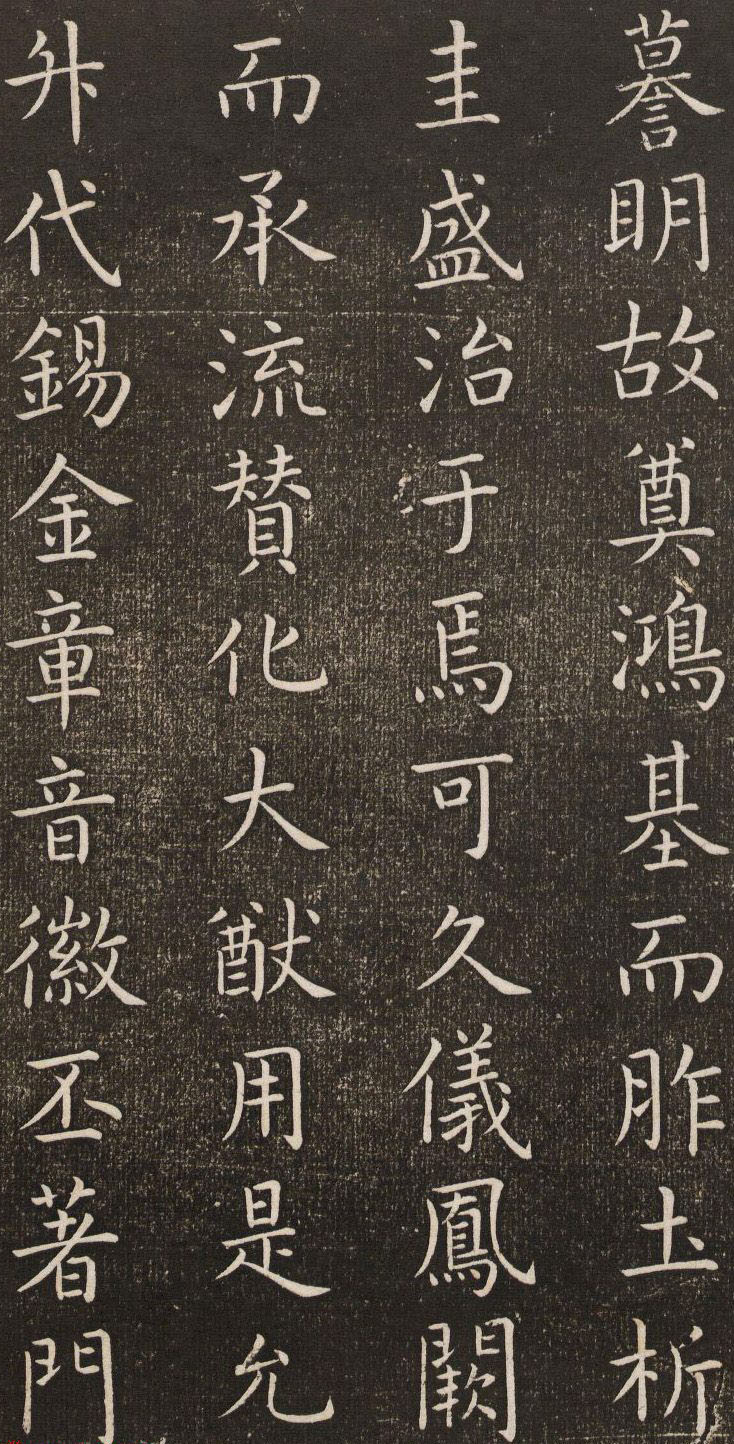 謩眀故奠鴻基而胙土析
圭盛治于焉可久儀鳳闕
而承流賛化大猷用是允
升代錫金章音徽丕著門